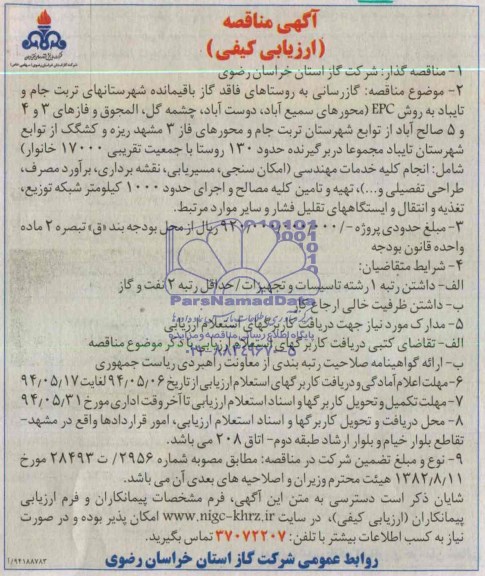 آگهی مناقصه
(ارزیابی کیفی)
شرکت ملی گاز ایران
شرکت گاز استان خراسان رضوی (سهامی خاص)
۱- مناقصه گذار: شرکت گاز استان خراسان رضوی
۲- موضوع مناقصه: گازرسانی به روستاهای فاقد گاز باقیمانده شهرستانهای تربت جام و
تایباد به روش EPC (محورهای سمیع آباد، دوست آباد، چشمه گل، المجوق و فازهای ۳ و ۴
و ۵ صالح آباد از توابع شهرستان تربت جام و محورهای فاز ۳ مشهد ریزه و کشگک از توابع
شهرستان تایباد مجموعا دربرگیرنده حدود ۱۳۰ روستا با جمعیت تقریبی ۱۷۰۰۰ خانوار)
شامل: انجام کلیه خدمات مهندسی (امکان سنجی، مسیریابی، نقشه برداری، برآورد مصرف،
طراحی تفصیلی و...)، تهیه و تامین کلیه مصالح و اجرای حدود ۱۰۰۰ کیلومتر شبکه توزیع،
تغذیه و انتقال و ایستگاههای تقلیل فشار و سایر موارد مرتبط.
۳- مبلغ حدودی پروژه -/۹۲۰/۰۰۰/۰۰۰/۰۰۰ ریال از محل بودجه بند «ق» تبصره ۲ ماده
واحده قانون بودجه
۴- شرایط متقاضیان:
الف- داشتن رتبه ۱ رشته تاسیسات و تجهیزات / حداقل رتبه ۲ نفت و گاز
ب- داشتن ظرفیت خالی ارجاع کار
۵- مدارک مورد نیاز جهت دریافت کاربرگهای استعلام ارزیابی
الف- تقاضای کتبی دریافت کاربرگهای استعلام ارزیابی با ذکر موضوع مناقصه
ب- ارائه گواهینامه صلاحیت رتبه بندی از معاونت راهبردی ریاست جمهوری
۶- مهلت اعلام آمادگی و دریافت کاربرگهای استعلام ارزیابی از تاریخ ۹۴/۰۵/۰۶ لغایت ۹۴/۰۵/۱۷
۷- مهلت تکمیل و تحویل کاربرگها و اسناد استعلام ارزیابی تا آخر وقت اداری مورخ ۹۴/۰۵/۳۱
۸- محل دریافت و تحویل کاربرگها و اسناد استعلام ارزیابی، امور قراردادها واقع در مشهد-
تقاطع بلوار خیام و بلوار ارشاد طبقه دوم- اتاق ۲۰۸ می باشد.
۹- نوع و مبلغ تضمین شرکت در مناقصه: مطابق مصوبه شماره ۲۹۵۶/ ت ۲۸۴۹۳ مورخ
۱۳۸۲/۸/۱۱ هیئت محترم وزیران و اصلاحیه های بعدی آن می باشد.
شایان ذکر است دسترسی به متن این آگهی، فرم مشخصات پیمانکاران و فرم ارزیابی
پیمانکاران (ارزیابی کیفی)، در سایت www.nigc-khrz.ir امکان پذیر بوده و در صورت
نیاز به کسب اطلاعات بیشتر با تلفن: ۳۷۰۷۲۲۰۷ تماس بگیرید.
روابط عمومی شرکت گاز استان خراسان رضوی
۹۴۱۸۸۷۸۳/آ
ParsNamadData
پایگاه اطلاع رسانی مناقصه و مزایده
۰۲۱-۸۸۳۴۹۶۷۰-۵